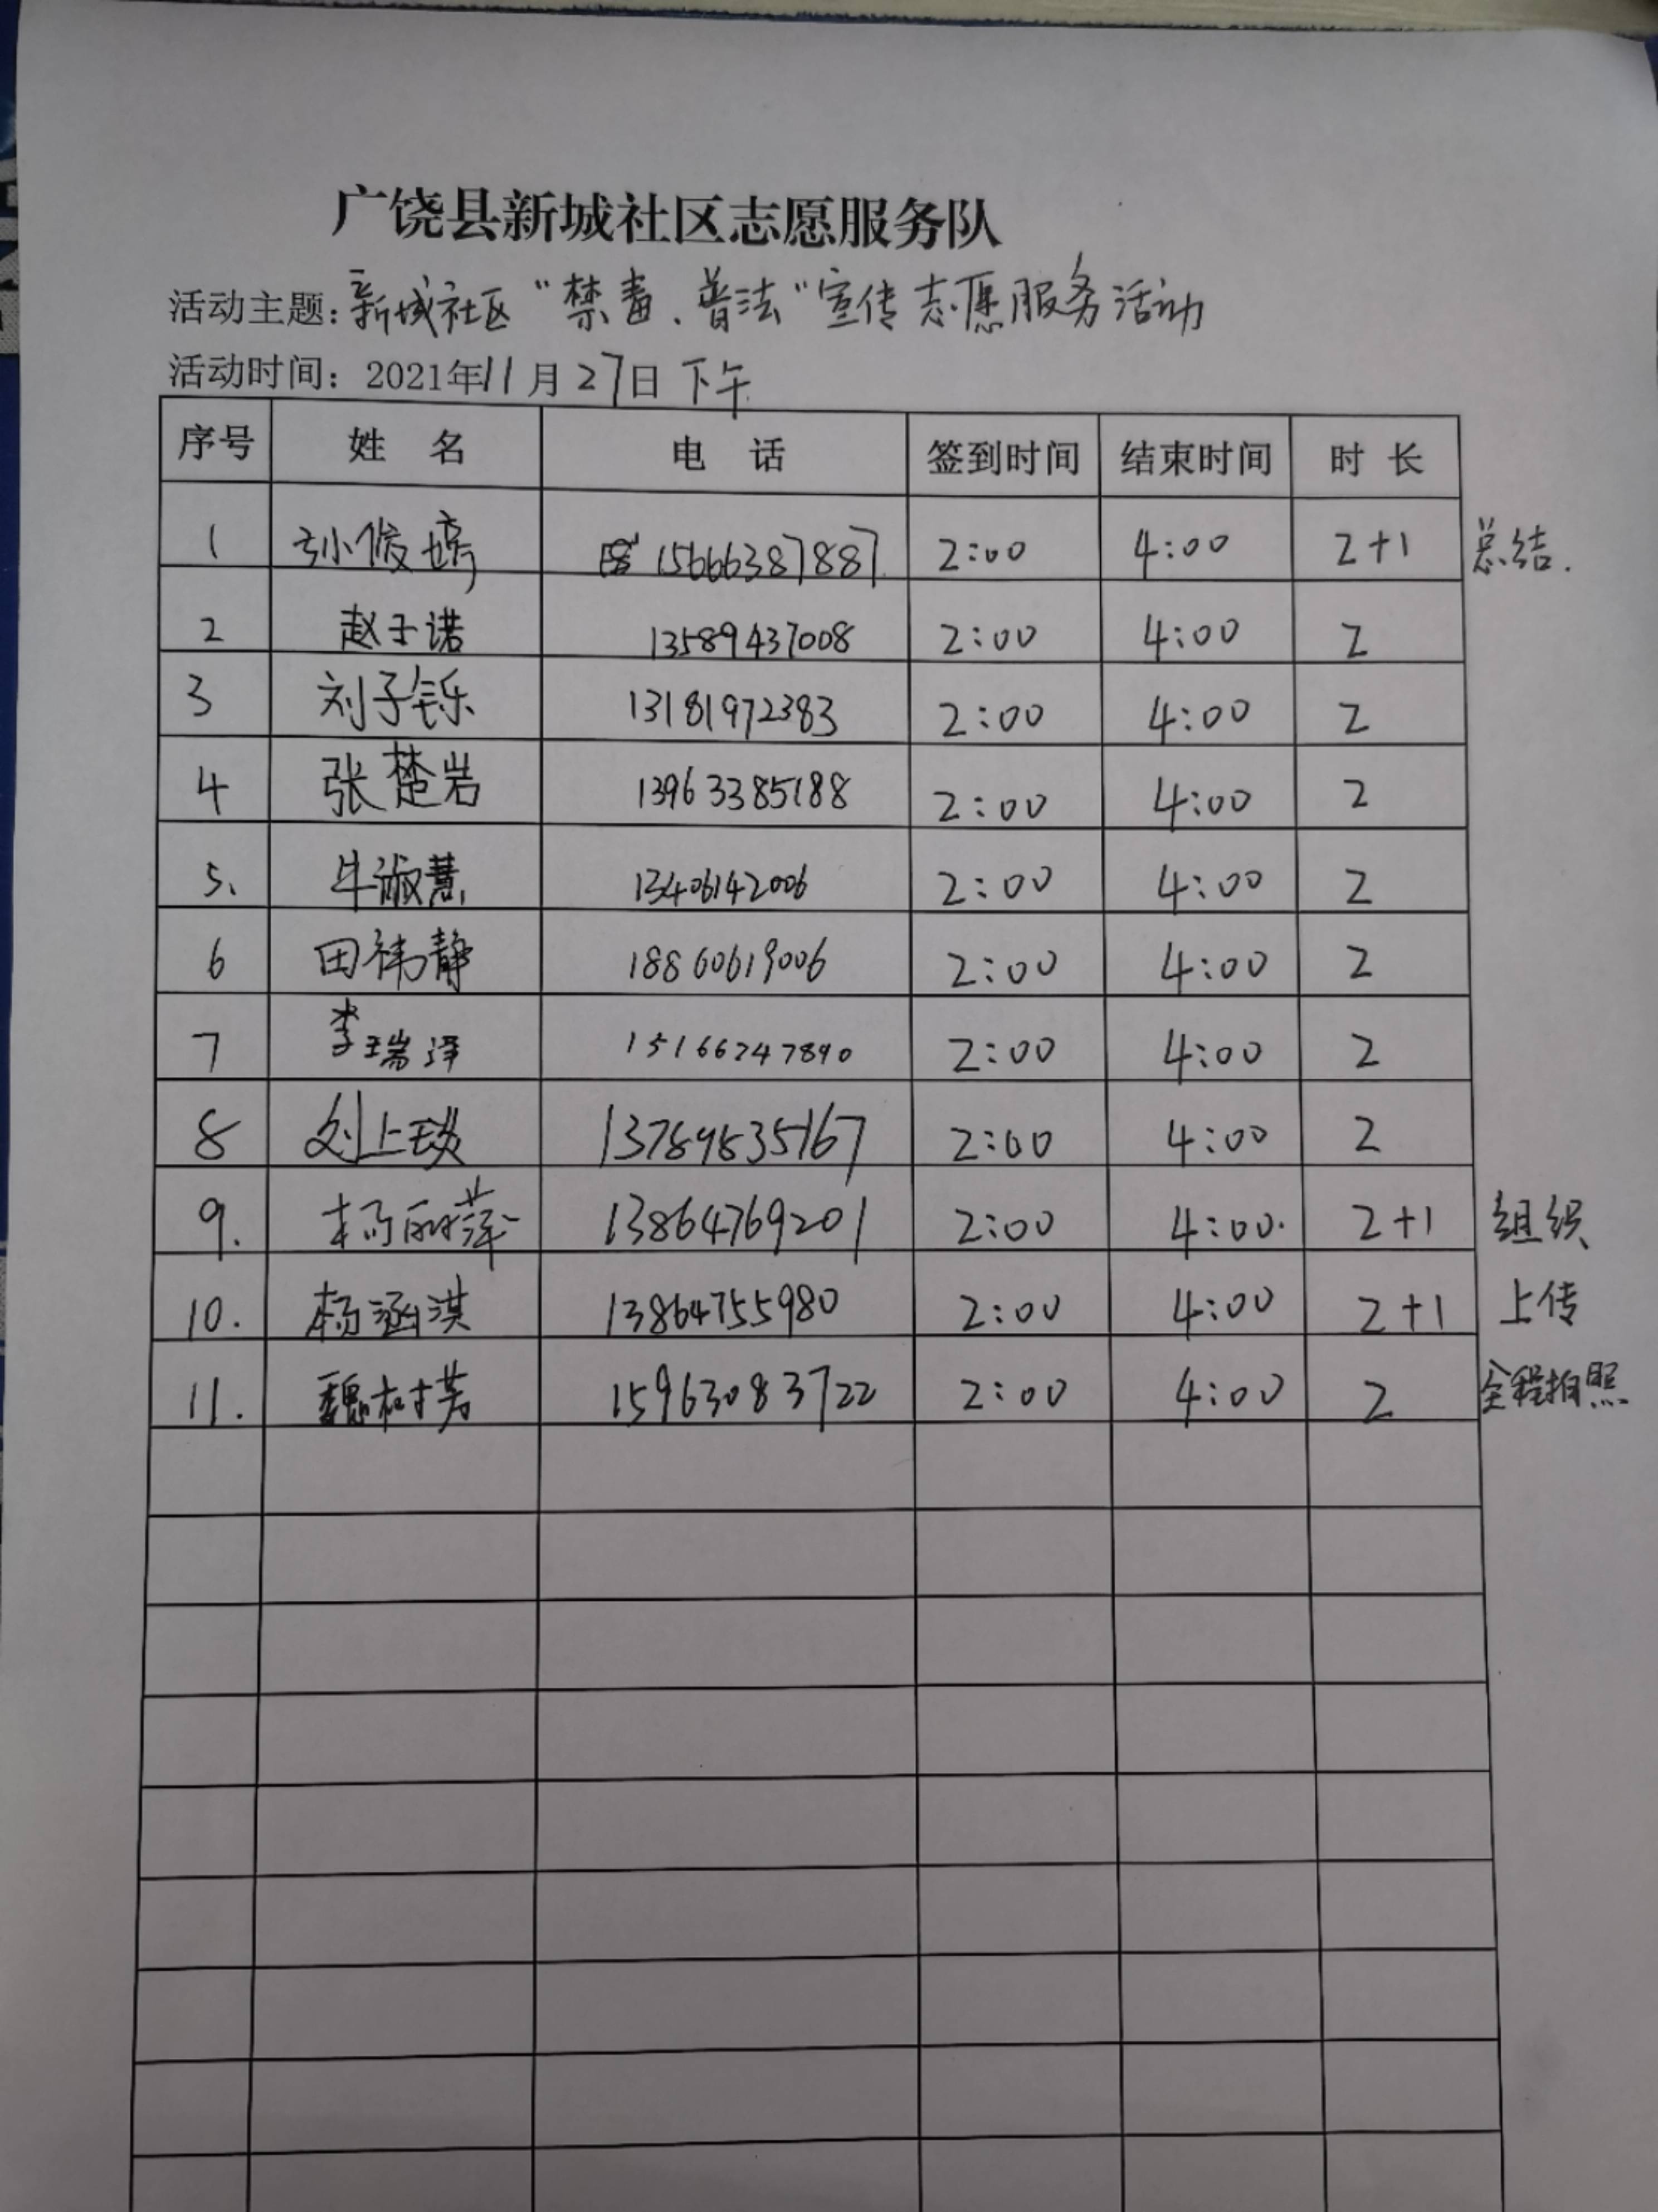 广饶县新城社区志愿服务队
活动主题:新城社区“禁毒、普法”宣传志愿服务活动
活动时间: 2021年11月27日 下午
序号 姓 名 电 话 签到时间 结束时间 时 长
1 孙俊婷 15666387887 2:00 4:00 2+1 总结.
2 赵子诺 13589437008 2:00 4:00 2
3 刘子铄 13181972383 2:00 4:00 2
4 张楚岩 13963385188 2:00 4:00 2
5. 牛淑慧 13406142006 2:00 4:00 2
6 田祎静 18860619006 2:00 4:00 2
7 李瑞泽 15166247890 2:00 4:00 2
8 刘上琰 13789835167 2:00 4:00 2
9. 杨丽萍 13864769201 2:00 4:00. 2+1 组织
10. 杨涵淇 13864755980 2:00 4:00 2+1 上传
11. 魏树芳 15963083722 2:00 4:00 2 全程拍照